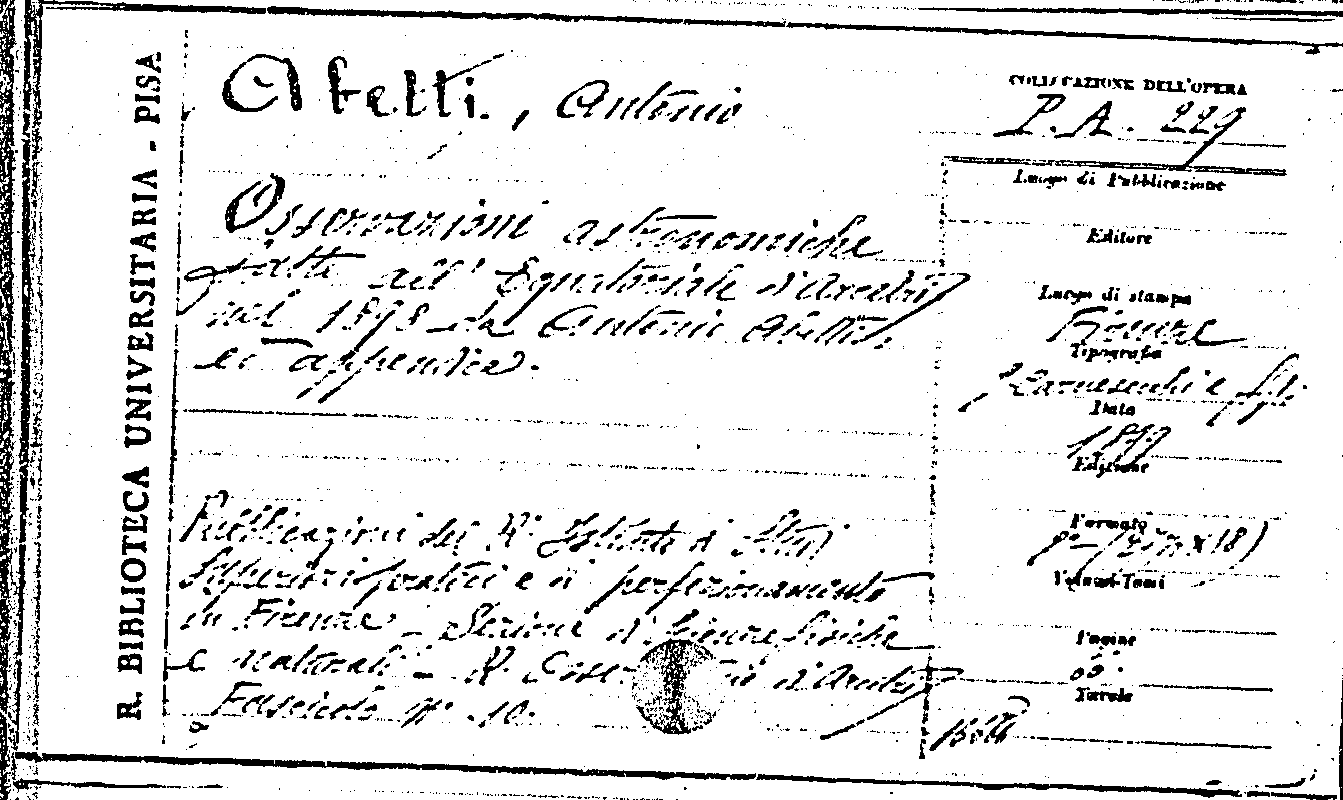 R. BIBLIOTECA UNIVERSITARIA - PISA
Abetti., Antonio
Osservazioni astronomiche
fatte all' Equatoriale d'Arcetri
nel 1898 da Antonio Abetti,
ed appendice.
Pubblicazioni del R. Istituto di Studi
Superiori pratici e di perfezionamento
in Firenze - Sezione di Scienze fisiche
e naturali - R. Osser d'Arcetri
Fascicolo N. 10.
COLLOCAZIONE DELL'OPERA
P. A. 229
Luogo di Pubblicazione
Editore
Luogo di stampa
Firenze
Tipografia
Carnesecchi e figli
Data
1899
Edizione
Formato
8º
x18)
Volumi-Tomi
Pagine
Tavole